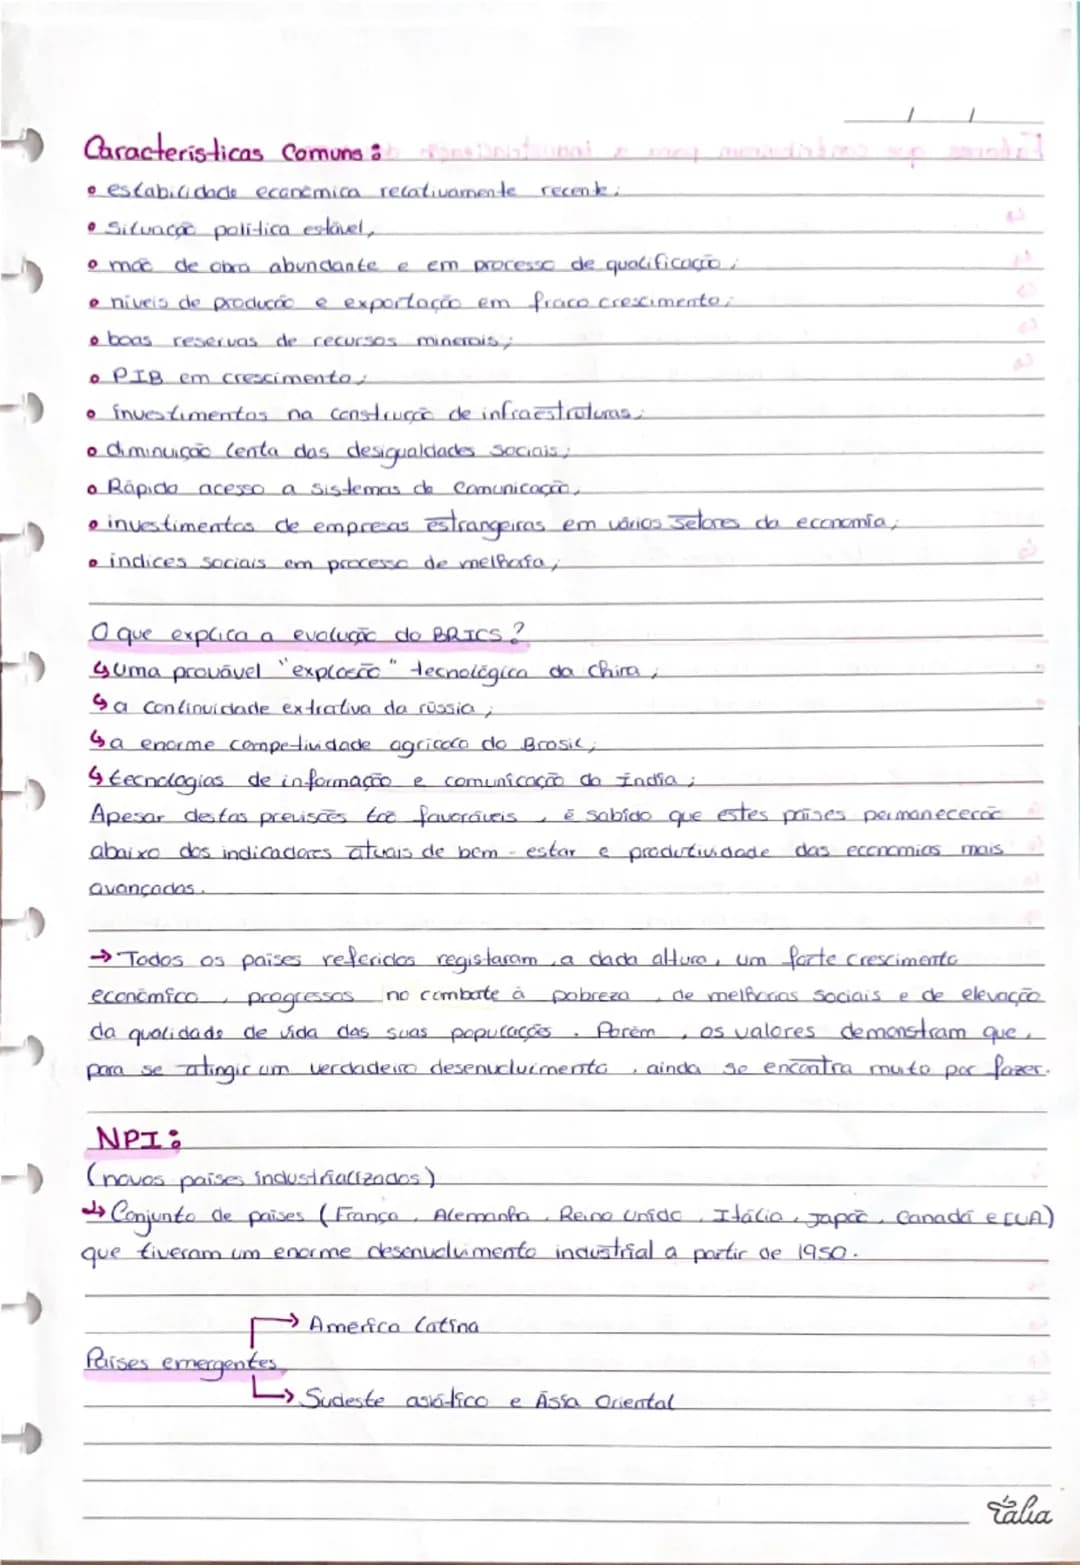 Características Comuns:
• estabilidade económica relativamente recente;
• Situação política estável,
• mão de obra abundante e em processo de qualificação;
• níveis de produção e exportação em fraco crescimento;
• boas reservas de recursos minerais;
• PIB em crescimento;
• investimentos na construção de infraestruturas;
• diminuição lenta das desigualdades sociais;
• Rápido acesso a sistemas de Comunicação;
• investimentos de empresas estrangeiras em vários setores da economia;
• indices sociais em processo de melhoria;
O que explica a evolução do BRICS?
↳ Uma provável "explosão" tecnológica da China;
↳ a continuidade extrativa da rússia;
↳ a enorme competividade agricola do Brasil;
↳ tecnologias de informação e comunicação da Índia;
Apesar destas previsões tão favoráveis, é sabido que estes países permanecerão
abaixo dos indicadores atuais de bem-estar e produtividade das economias mais
avançadas.
→ Todos os países referidos registaram, a dada altura, um forte crescimento
económico, progressos no combate à pobreza, de melhorias sociais e de elevação
da qualidade de vida das suas populações. Porém, os valores demonstram que,
para se atingir um verdadeiro desenvolvimento, ainda se encontra muito por fazer.
NPI:
(novos países industrializados)
↳ Conjunto de países (França, Alemanha, Reino Unido, Itália, Japão, Canadá e EUA)
que tiveram um enorme desenvolvimento industrial a partir de 1950.
→ América Latina
Países emergentes
→ Sudeste asiático e Ásia Oriental
Talia